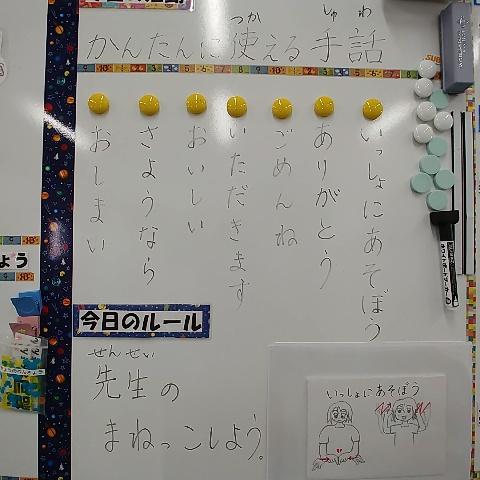 かんたんに使える手話
つか
しゅわ
いっしょにあそぼう
ありがとう
ごめんね
いただきます
おいしい
さようなら
おしまい
今日のルール
せんせい
先生の
まねっこしよう。
いっしょにあそぼう
よう